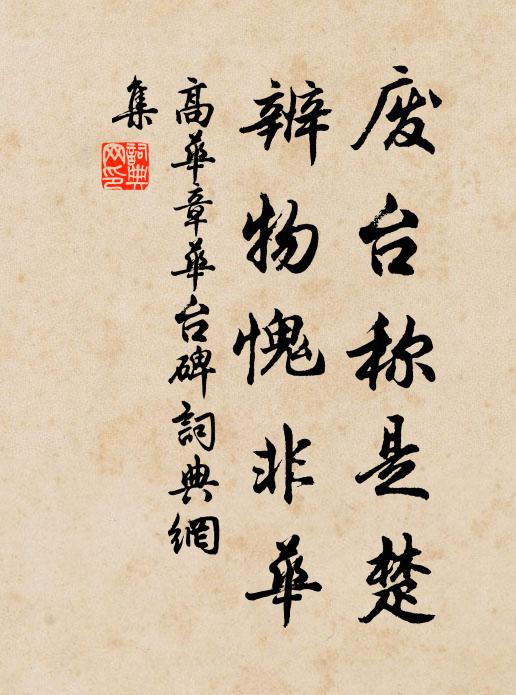 废台称是楚
辨物愧非華
高華章華台碑詞典網
集
詞典
网印